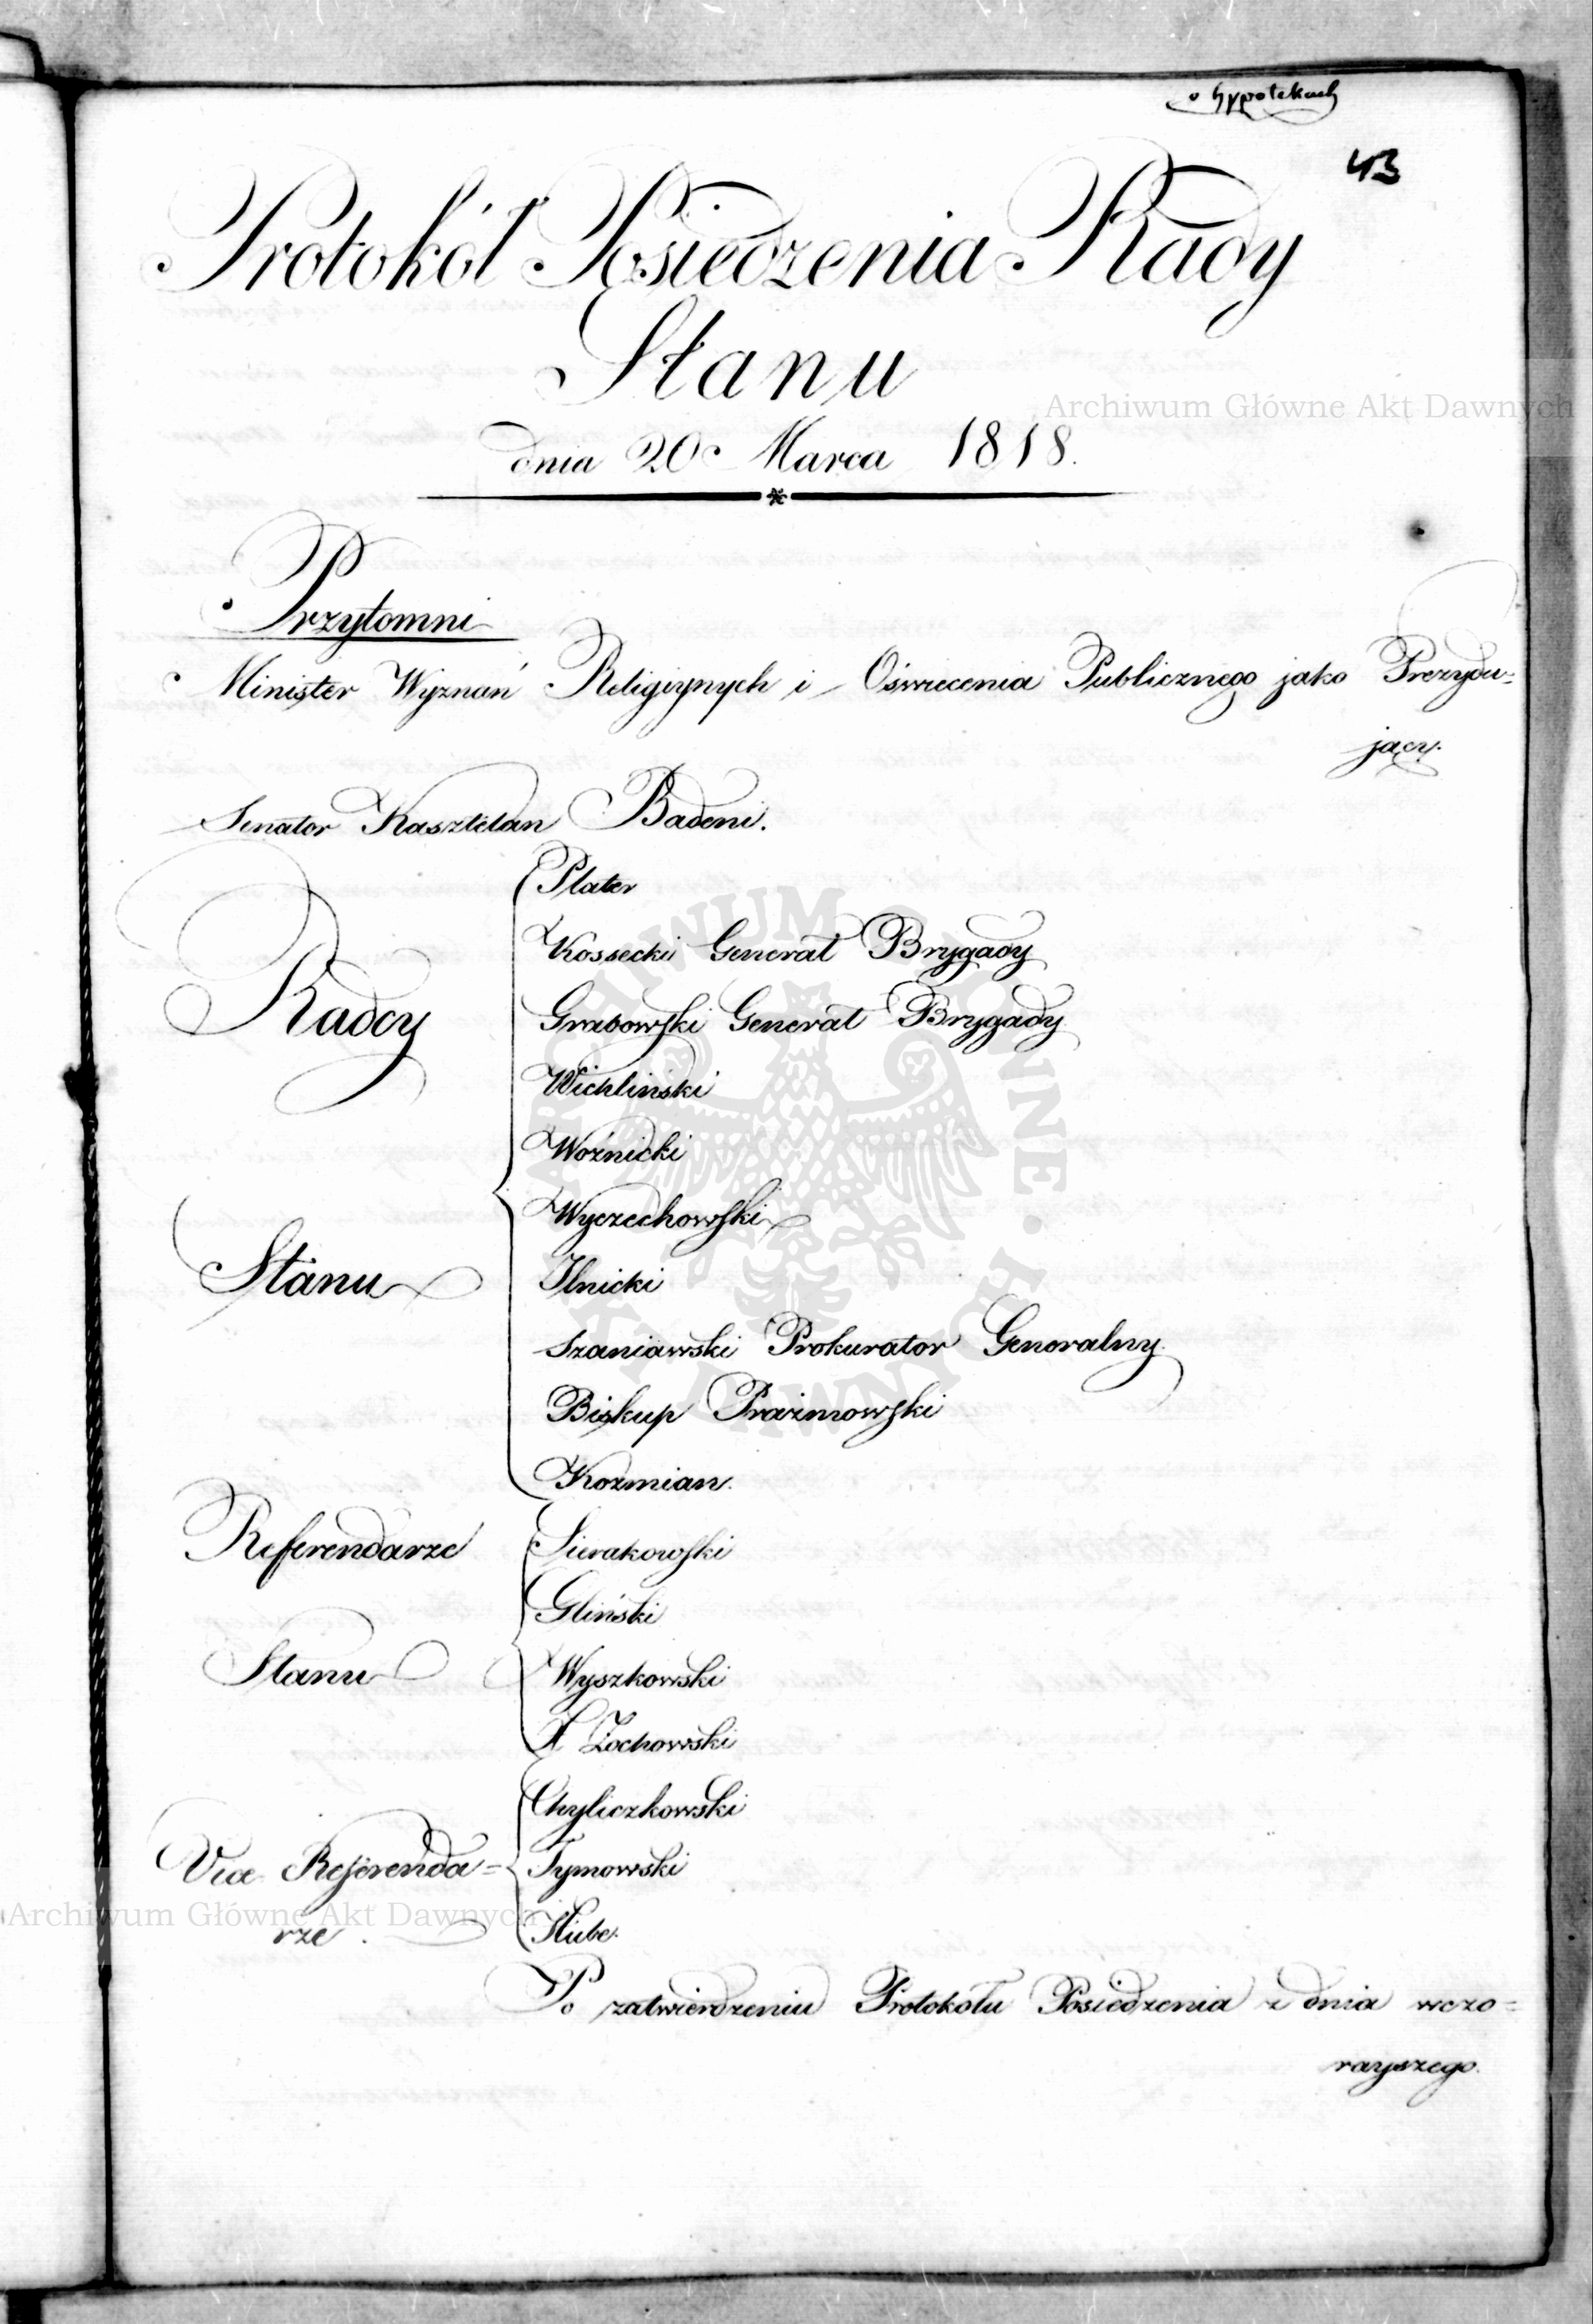 o hypotekach
43
Protokół Posiedzenia Rady
Stanu
dnia 20 Marca 1818.
Przytomni
Minister Wyznań Religiynych i Oświecenia Publicznego jako Prezydu=
jący.
Senator Kasztelan Badeni.
Radcy
Stanu
Plater
Kossecki Generał Brygady
Grabowski Generał Brygady
Wichliński
Woźnicki
Wyczechowski
Ilnicki
Szaniawski Prokurator Generalny
Biskup Prażmowski
Kozmian.
Referendarze
Stanu
Sierakowski
Gliński
Wyszkowski
X Zochowski
Vice Referenda=
rze.
Chyliczkowski
Tymowski
Hube.
Po zatwierdzeniu Protokołu Posiedzenia z dnia wczo=
rayszego.
Archiwum Główne Akt Dawnych
Archiwum Główne Akt Dawnych
ARCHIWUM GŁÓWNE · AKT DAWNYCH ·